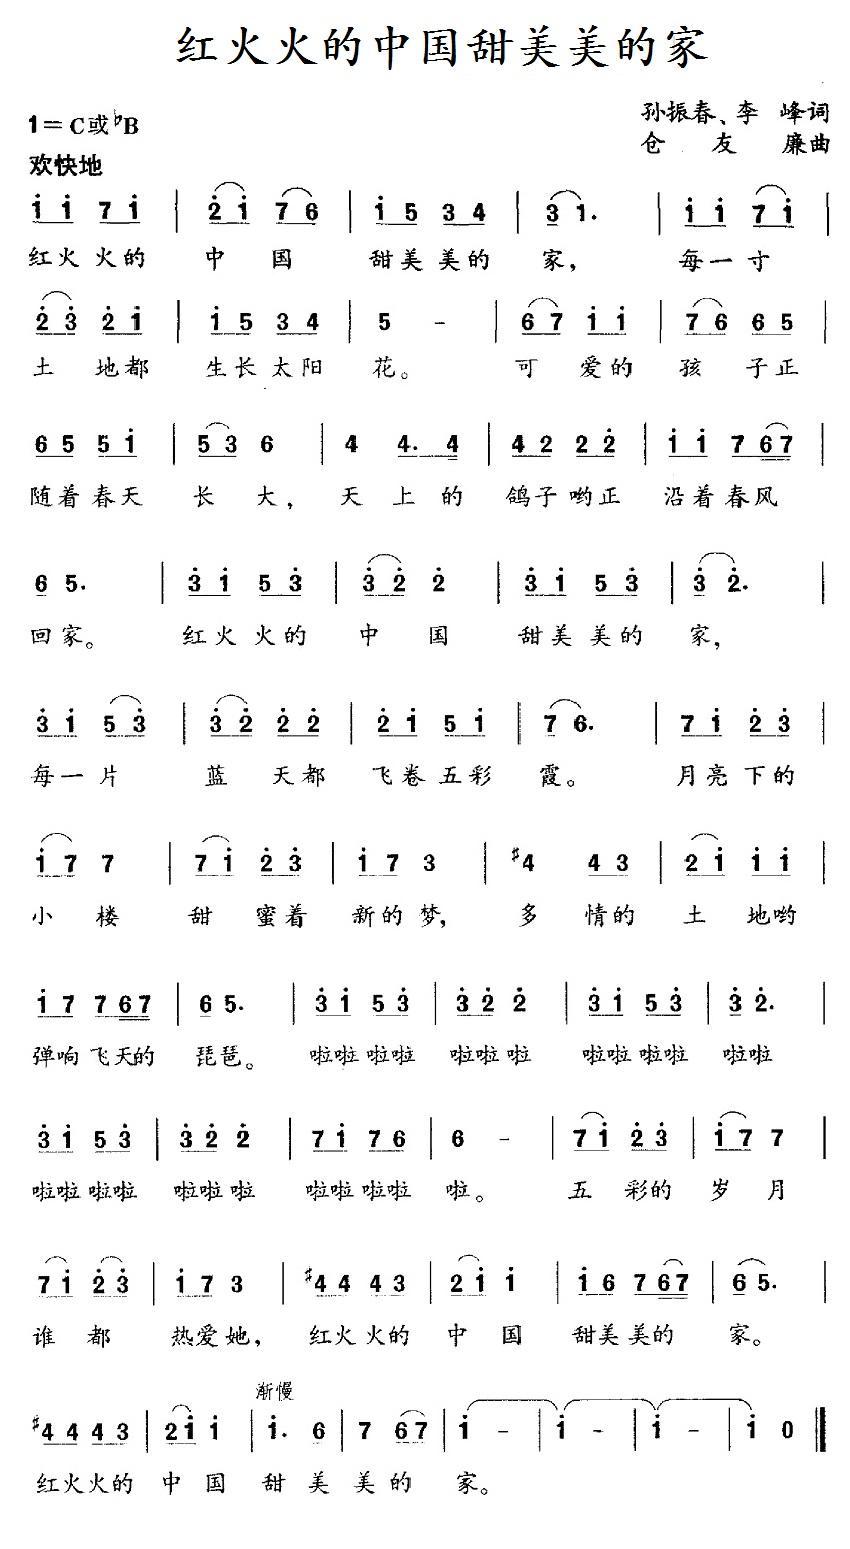 红火火的中国甜美美的家
孙振春、李 峰词
1=C或♭B
仓 友 廉曲
欢快地
i i 7 i | 2̇ i 7 6 | i 5 3 4 | 3 1. | i i 7 i |
红火 火的 中 国 甜美 美的 家， 每一 寸
2̇ 3̇ 2̇ i | i 5 3 4 | 5 - | 6 7 i i | 7 6 6 5 |
土 地都 生长 太阳 花。 可 爱的 孩 子正
6 5 5 i | 5 3 6 | 4 4. 4 | 4 2 2 2̇ | i i 7 6 7 |
随着 春天 长 大， 天 上 的 鸽子 哟正 沿着 春风
6 5. | 3̇ i 5 3̇ | 3̇ 2̇ 2̇ | 3̇ i 5 3̇ | 3̇ 2̇. |
回家。 红火 火的 中 国 甜美 美的 家，
3̇ i 5 3̇ | 3̇ 2̇ 2̇ 2̇ | 2̇ i 5 i | 7 6. | 7 i 2̇ 3̇ |
每一 片 蓝 天都 飞卷 五彩 霞。 月亮 下的
i 7 7 | 7 i 2̇ 3̇ | i 7 3 | ♯4 4 3 | 2 i i i |
小 楼 甜 蜜着 新的 梦， 多 情的 土 地哟
i 7 7 6 7 | 6 5. | 3̇ i 5 3̇ | 3̇ 2̇ 2̇ | 3̇ i 5 3̇ | 3̇ 2̇. |
弹响 飞天的 琵琶。 啦啦 啦啦 啦啦 啦 啦啦 啦啦 啦啦
3̇ i 5 3̇ | 3̇ 2̇ 2̇ | 7 i 7 6 | 6 - | 7 i 2̇ 3̇ | i 7 7 |
啦啦 啦啦 啦啦 啦 啦啦 啦啦 啦。 五 彩的 岁 月
7 i 2̇ 3̇ | i 7 3 | ♯4 4 4 3 | 2 i i | i 6 7 6 7 | 6 5. |
谁 都 热爱 她， 红火 火的 中 国 甜美 美的 家。
渐慢
♯4 4 4 3 | 2 i i | i. 6 | 7 6 7 | i - | i - | i - | i 0 ‖
红火 火的 中 国 甜 美 美 的 家。